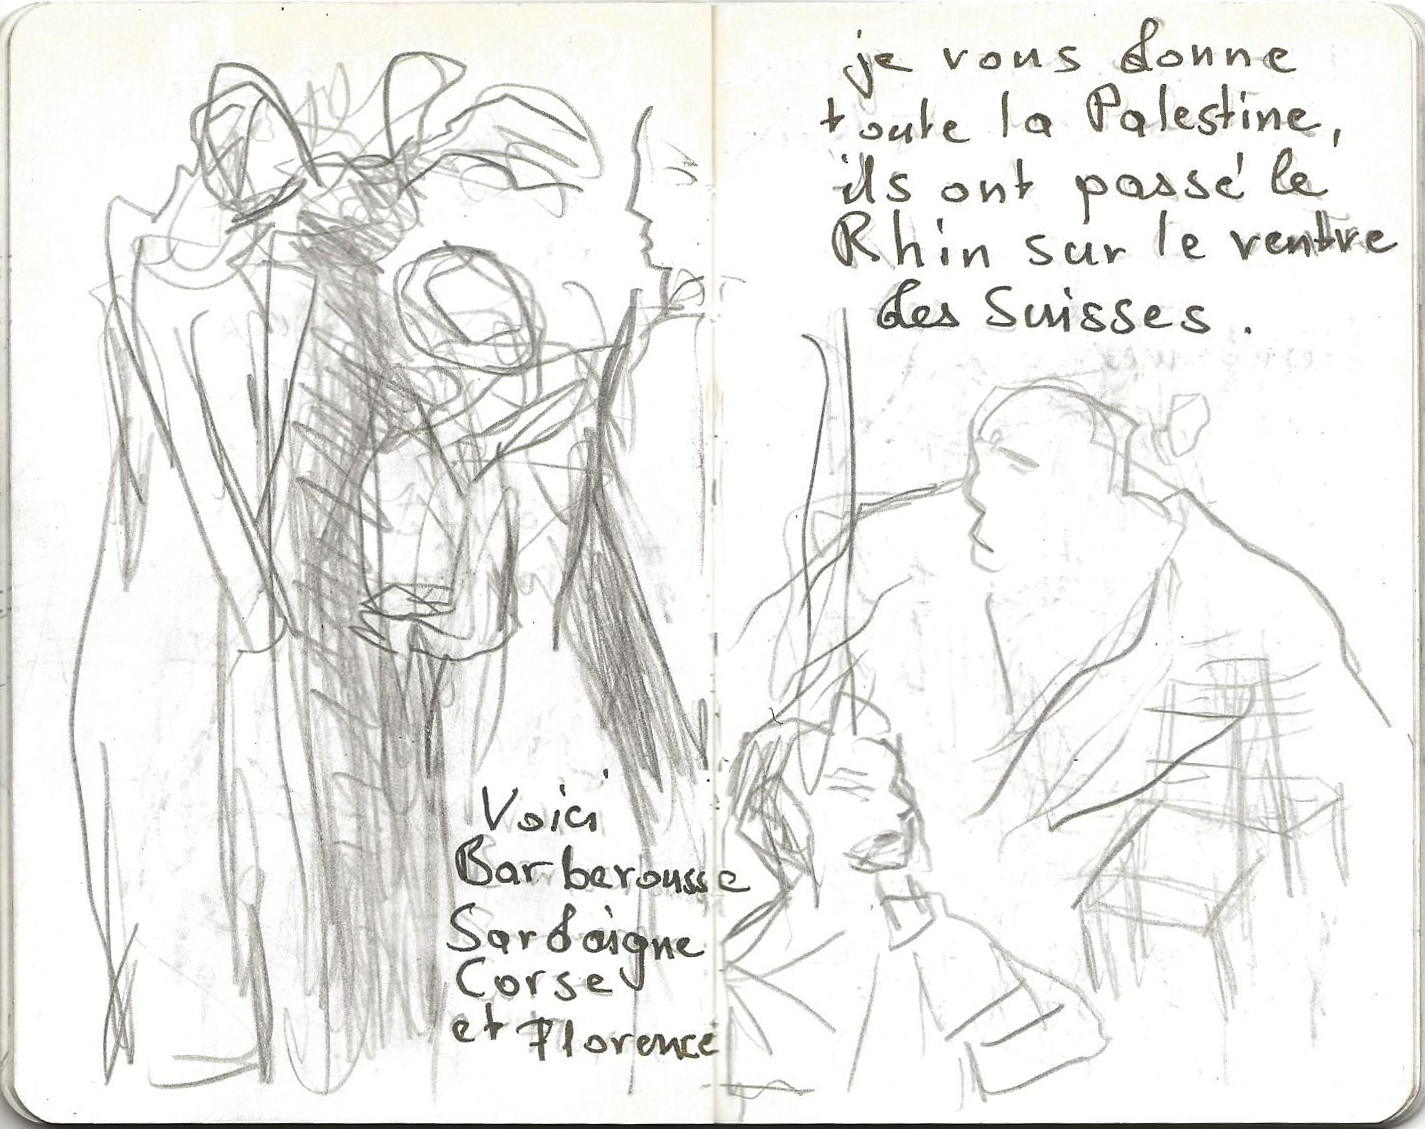 Voici
Barberousse
Sardaigne
Corse
et Florence
je vous donne
toute la Palestine,
ils ont passé le
Rhin sur le ventre
des Suisses.